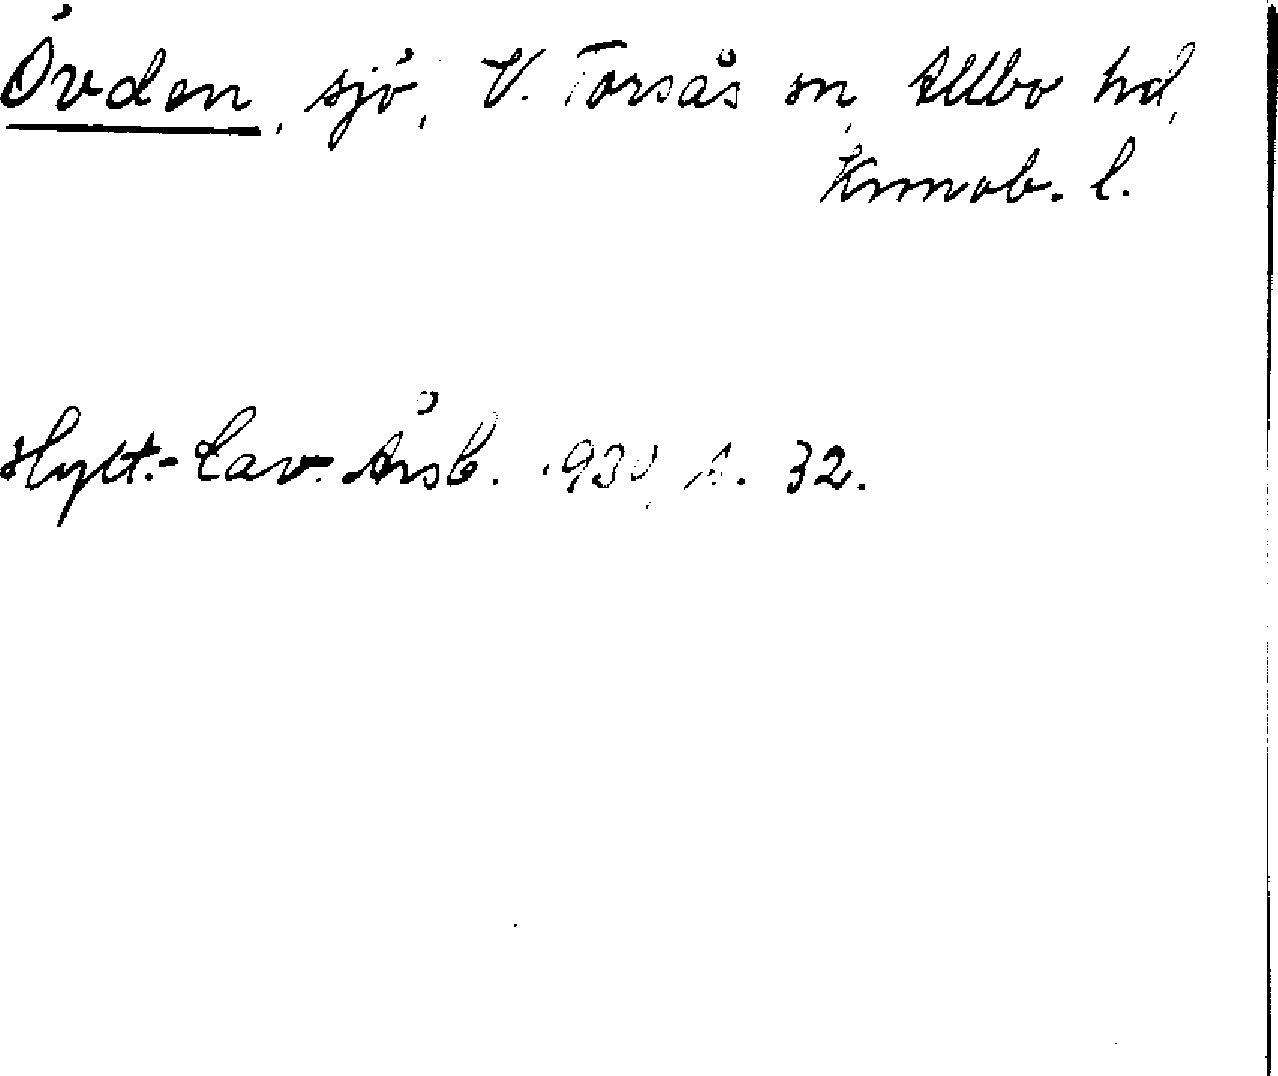 Övden, sjö, V. Torsås sn, Allbo hd,
Kronob. l.
Hylt.-Cav. Årsb. 1930, s. 32.